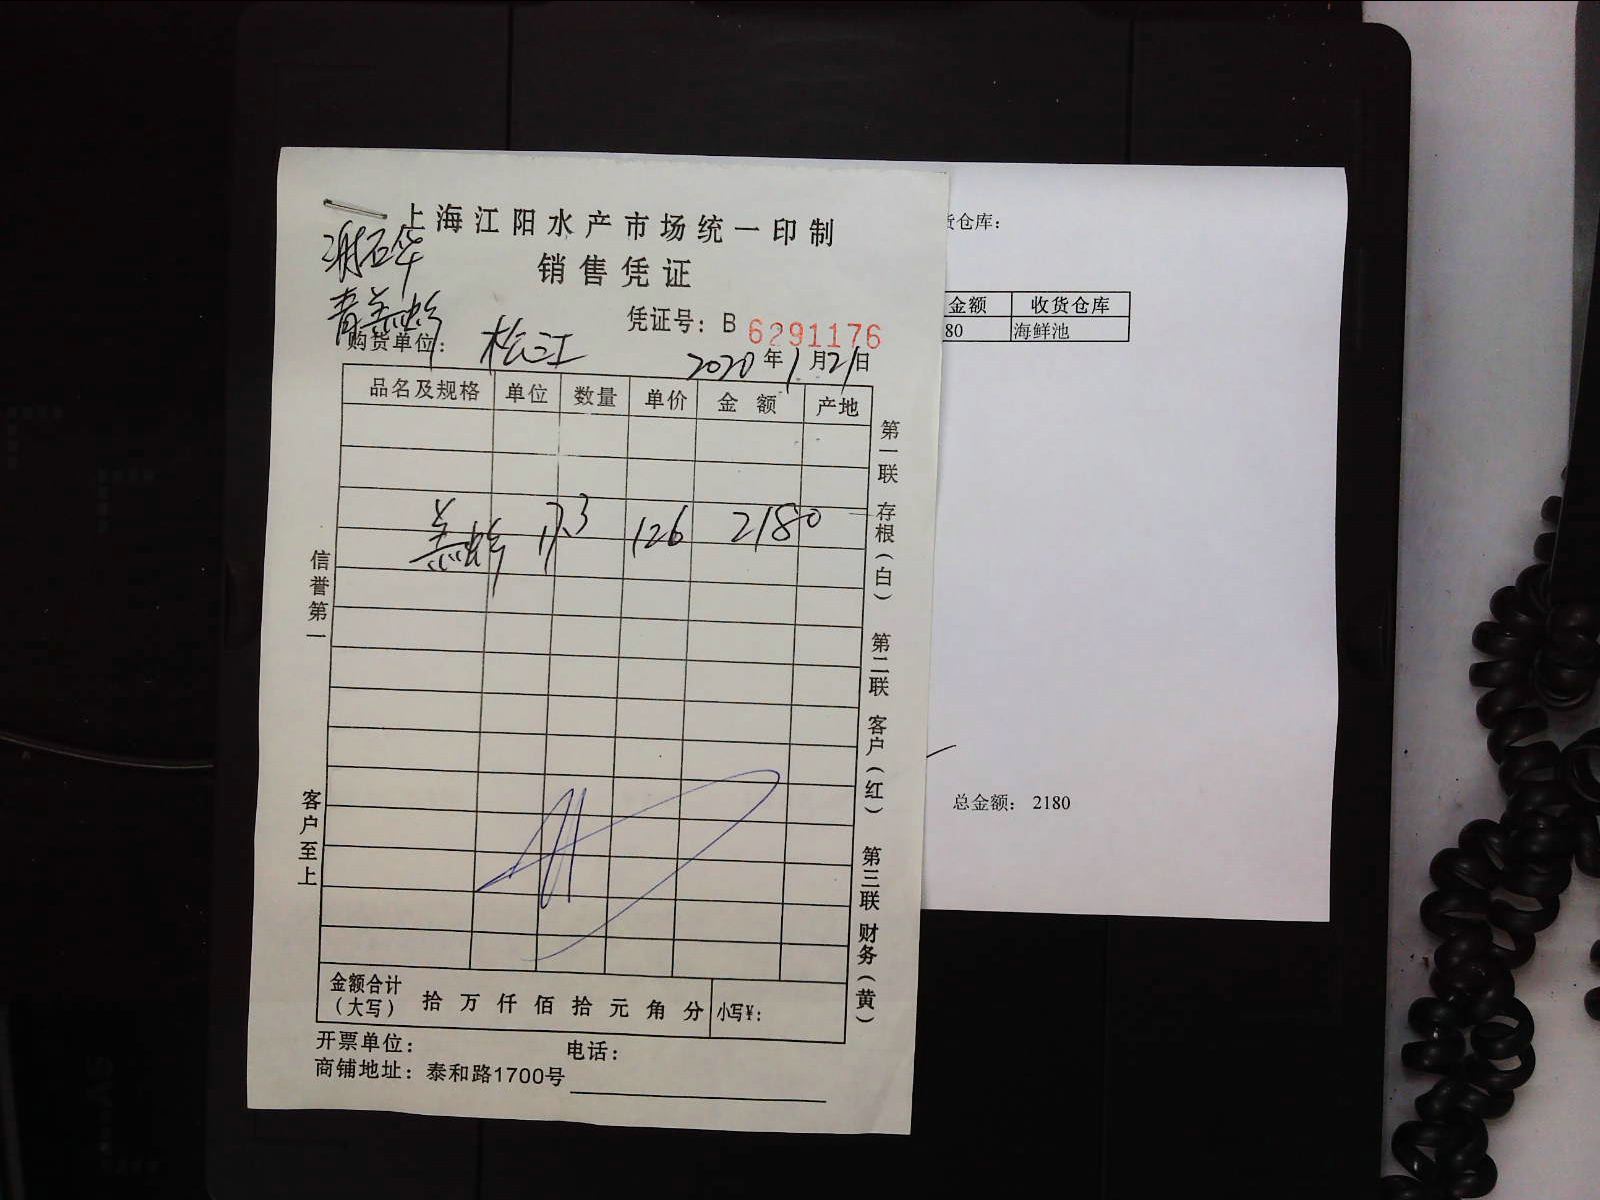 上海江阳水产市场统一印制
销售凭证
谢石华
青羔蚧
凭证号：B 6291176
购货单位：松江
2020年1月21日
品名及规格 单位 数量 单价 金额 产地
17.3 126 2180
信誉第一
客户至上
第一联 存根（白） 第二联 客户（红） 第三联 财务（黄）
金额合计（大写） 拾万仟佰拾元角分 小写¥：
开票单位： 电话：
商铺地址：泰和路1700号
货仓库：
金额 收货仓库
80 海鲜池
总金额： 2180